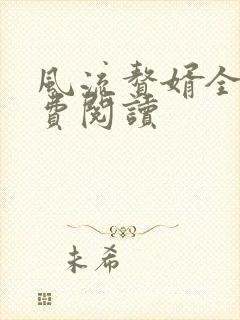 風流贅婿全
費閱讀
未希